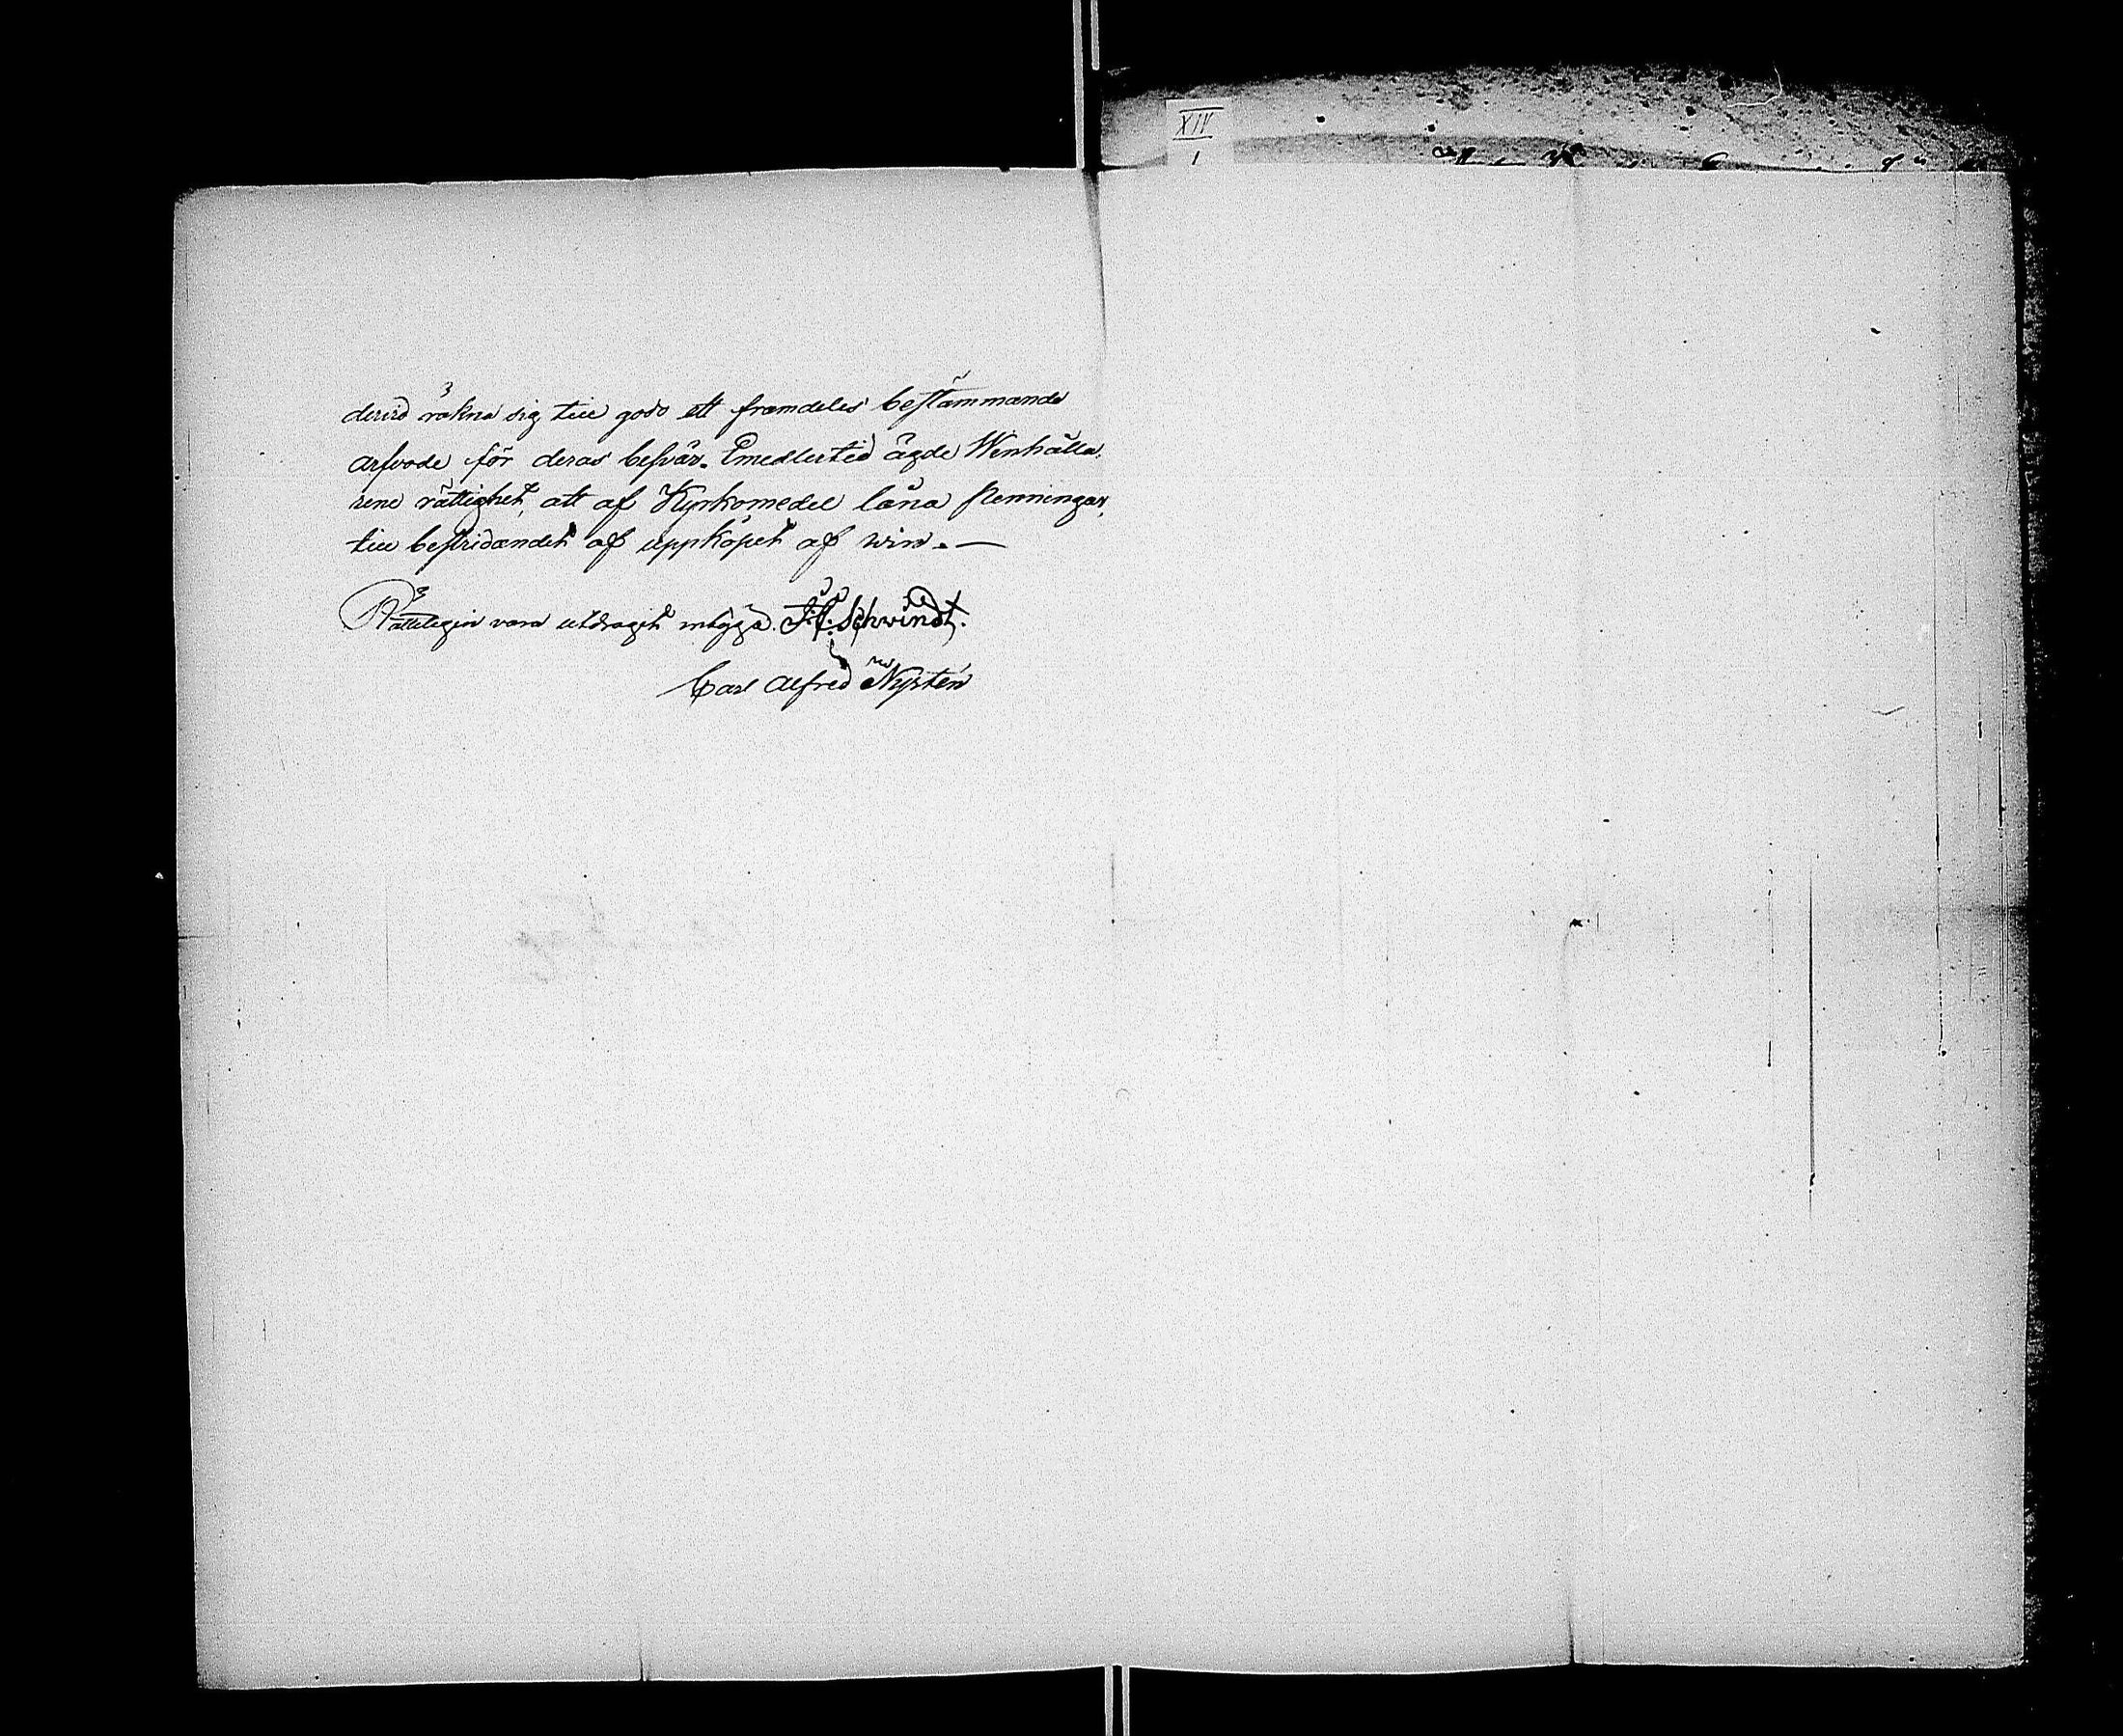 XIV
1
dervid räkna sig till godo ett framdeles bestämmande
arfvode för deras besvär. Emedlertid ägde Winhålla,
rene rättighet, att af Kyrkomedel låna penningar,
till bestridandet af uppköpet af win. —
Rätteligen vara utdraget intyga. Schwindt.
Carl Alfred Nystén